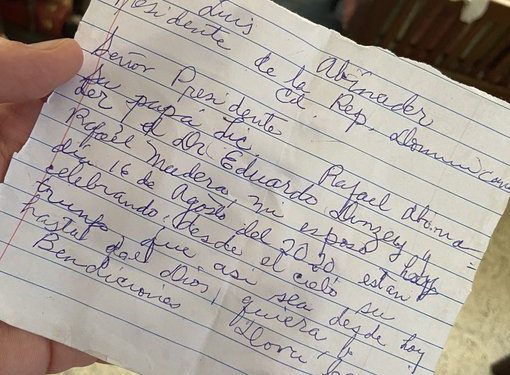 Luis Abinader
Presidente de la Rep. Dominicana
Cd.
Señor Presidente
Su papá Lic Rafael Abina=
der y Dr. Eduardo
Rafael mi esposo hoy
día 16 de Agosto del 2020 estan
celebrando, desde el cielo su
triunfo, que asi sea desde hoy
hasta que Dios, quiera
Bendiciones